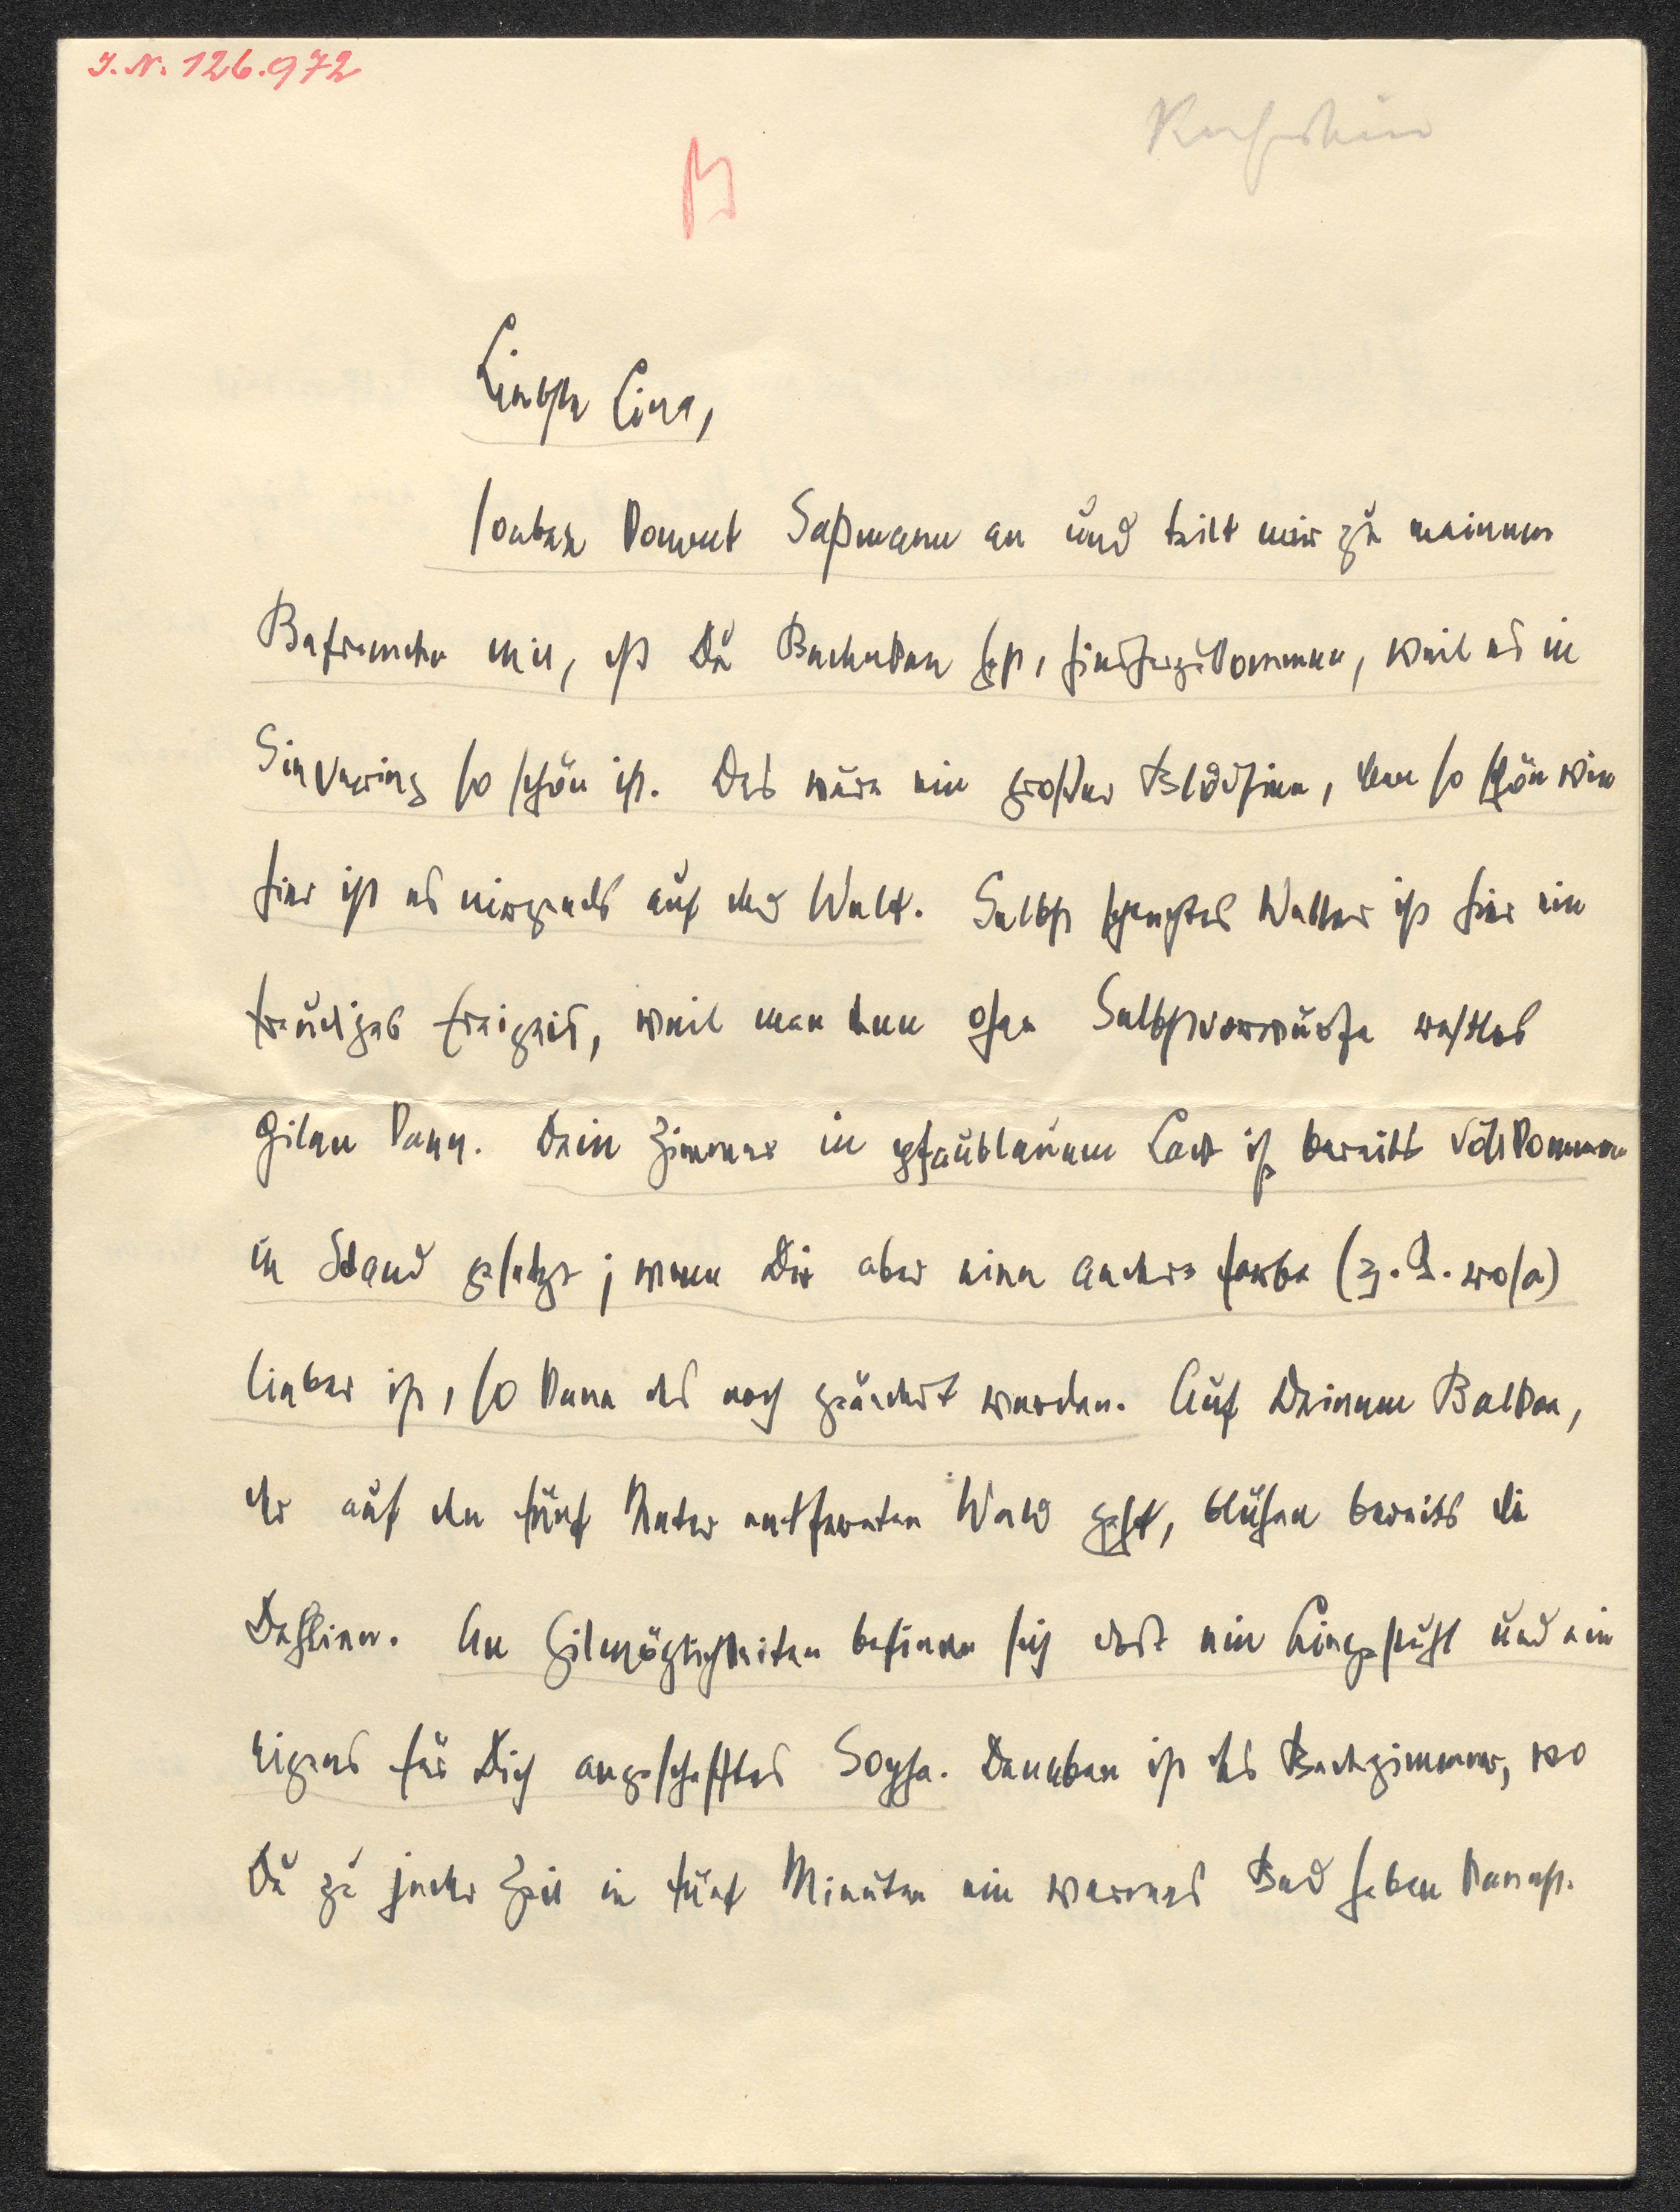 I. N. 126.972
Liebste Lina,
soeben kommt Saßmann an und teilt mir zu meinem
Befremden mit, daß Du Bedenken hast, hierherzukommen, weil es in
Sievering so schön ist. Das wäre ein großer Blödsinn, denn so schön wie
hier ist es nirgends auf der Welt. Selbst schlechtes Wetter ist hier ein
freudiges Ereignis, weil man dann ohne Selbstvorwürfe restlos
gilen kann. Dein Zimmer in pfaublauem Lack ist bereits vollkommen
in Stand gesetzt; wenn Dir aber eine andere Farbe (z. B. rosa)
lieber ist, so kann das noch geändert werden. Auf Deinem Balkon,
der auf den fünf Meter entfernten Wald geht, blühen bereits die
Dahlien. An Gilmöglichkeiten befinden sich dort ein Liegestuhl und ein
eigens für Dich angeschafftes Sopha. Daneben ist das Badezimmer, wo
Du zu jeder Zeit in fünf Minuten ein warmes Bad haben kannst.